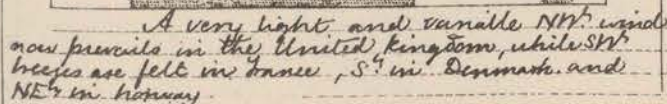 A very light and variable NWly wind
now prevails in the United Kingdom, while SWly
breezes are felt in France, Sly in Denmark and
NEly in Norway